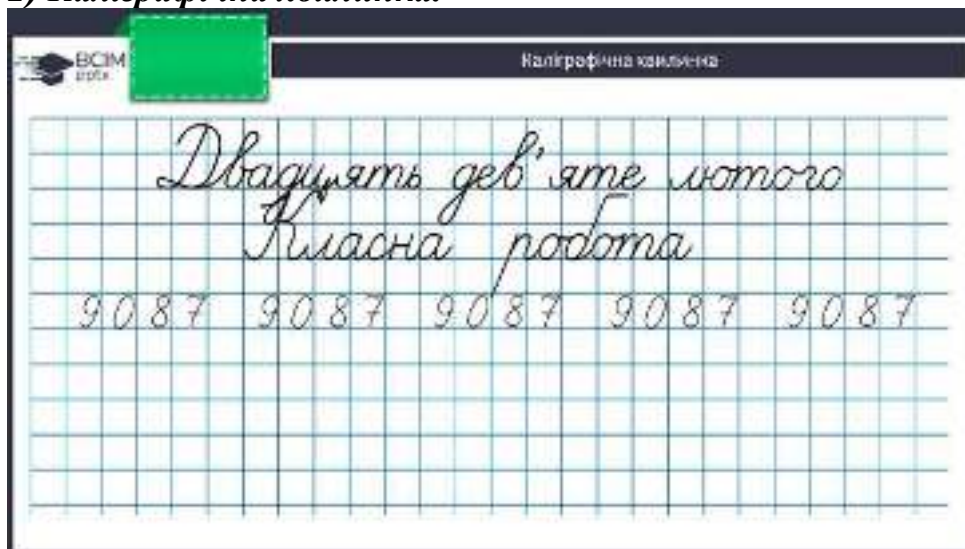 2) Каліграфічна хвилинка.
ВСІМ
pptx
Каліграфічна хвилинка
Двадцять дев'яте лютого
Класна робота
9087 9087 9087 9087 9087